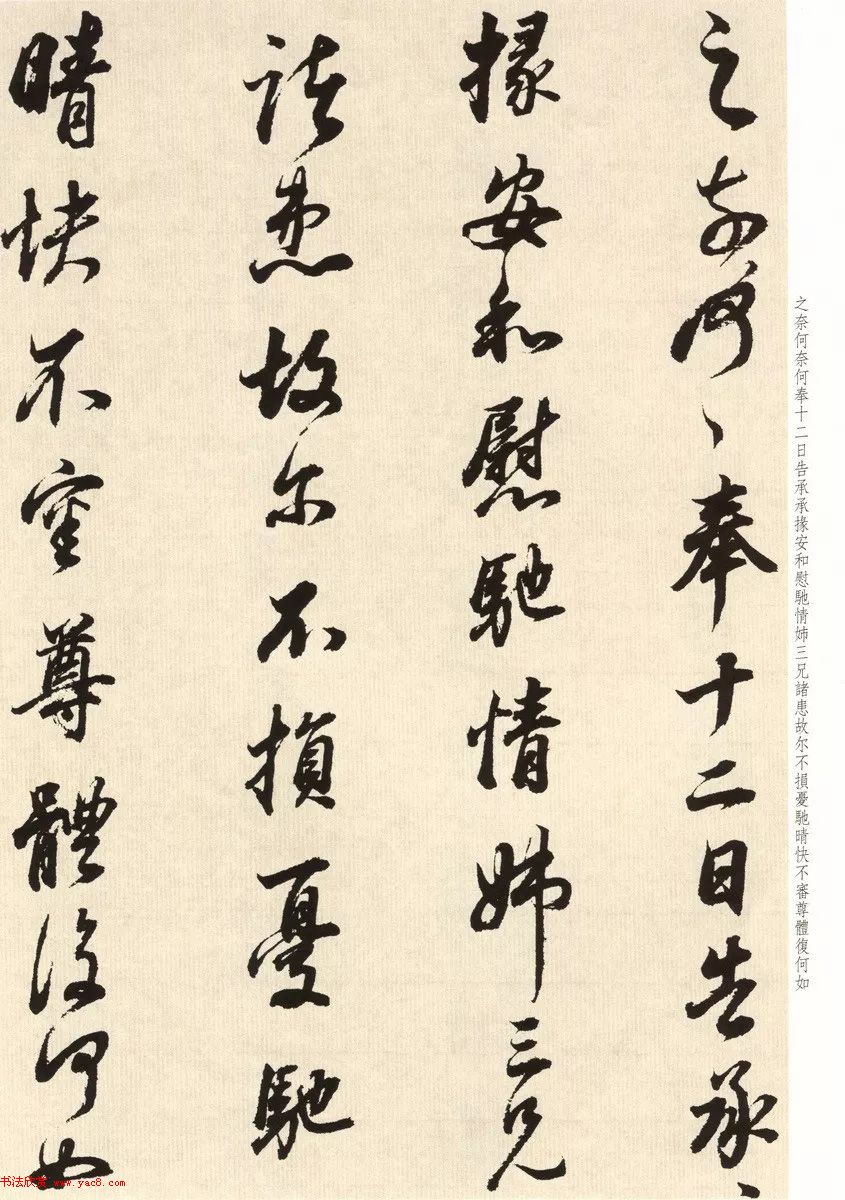 之奈何奈何奉十二日告承承掾安和慰馳情姊三兄諸患故尔不損憂馳晴快不審尊體復何如
之奈何〻奉十二日告承〻
掾安和慰馳情姊三兄
諸患故尔不損憂馳
晴快不審尊體復何如
书法欣赏 www.yac8.com